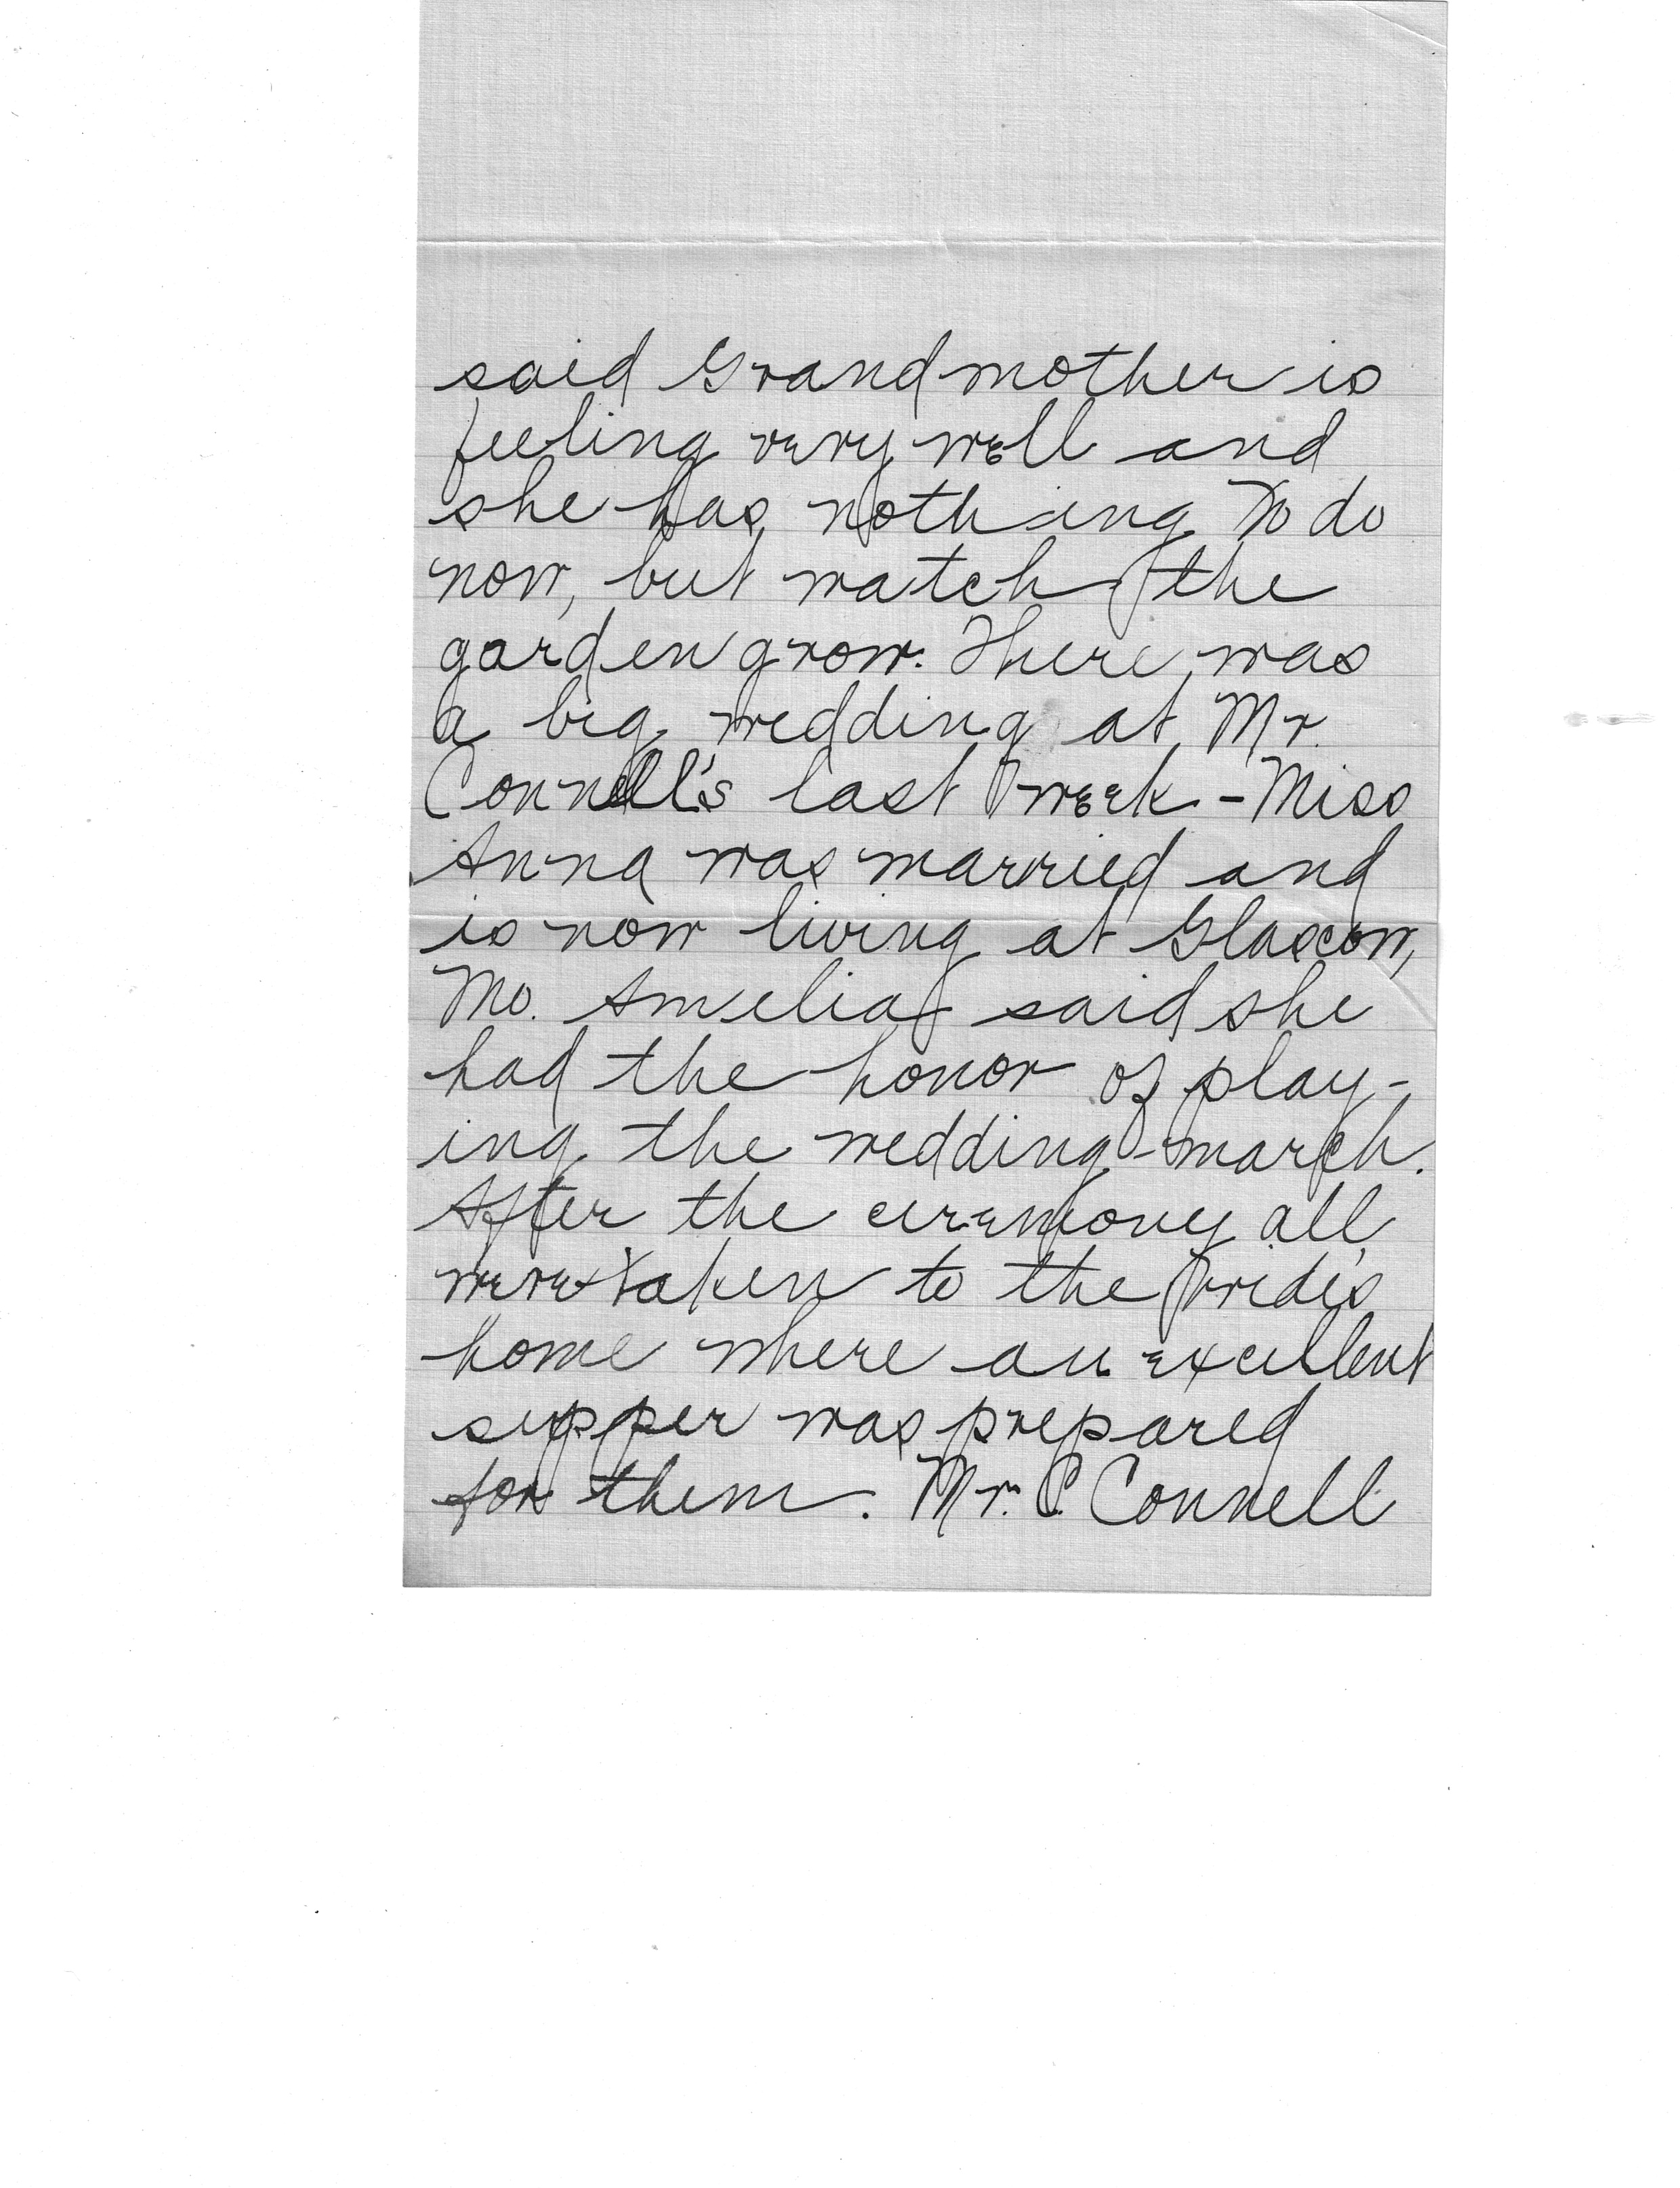 said Grandmother is
feeling very well and
she has nothing to do
now, but watch the
garden grow. There was
a big wedding at Mr.
Connell's last week - Miss
Anna was married and
is now living at Glascow,
Mo. Amelia said she
had the honor of play-
ing the wedding-march.
After the ceremony all
were taken to the bride's
home where an excellent
supper was prepared
for them. Mr. C. Connell